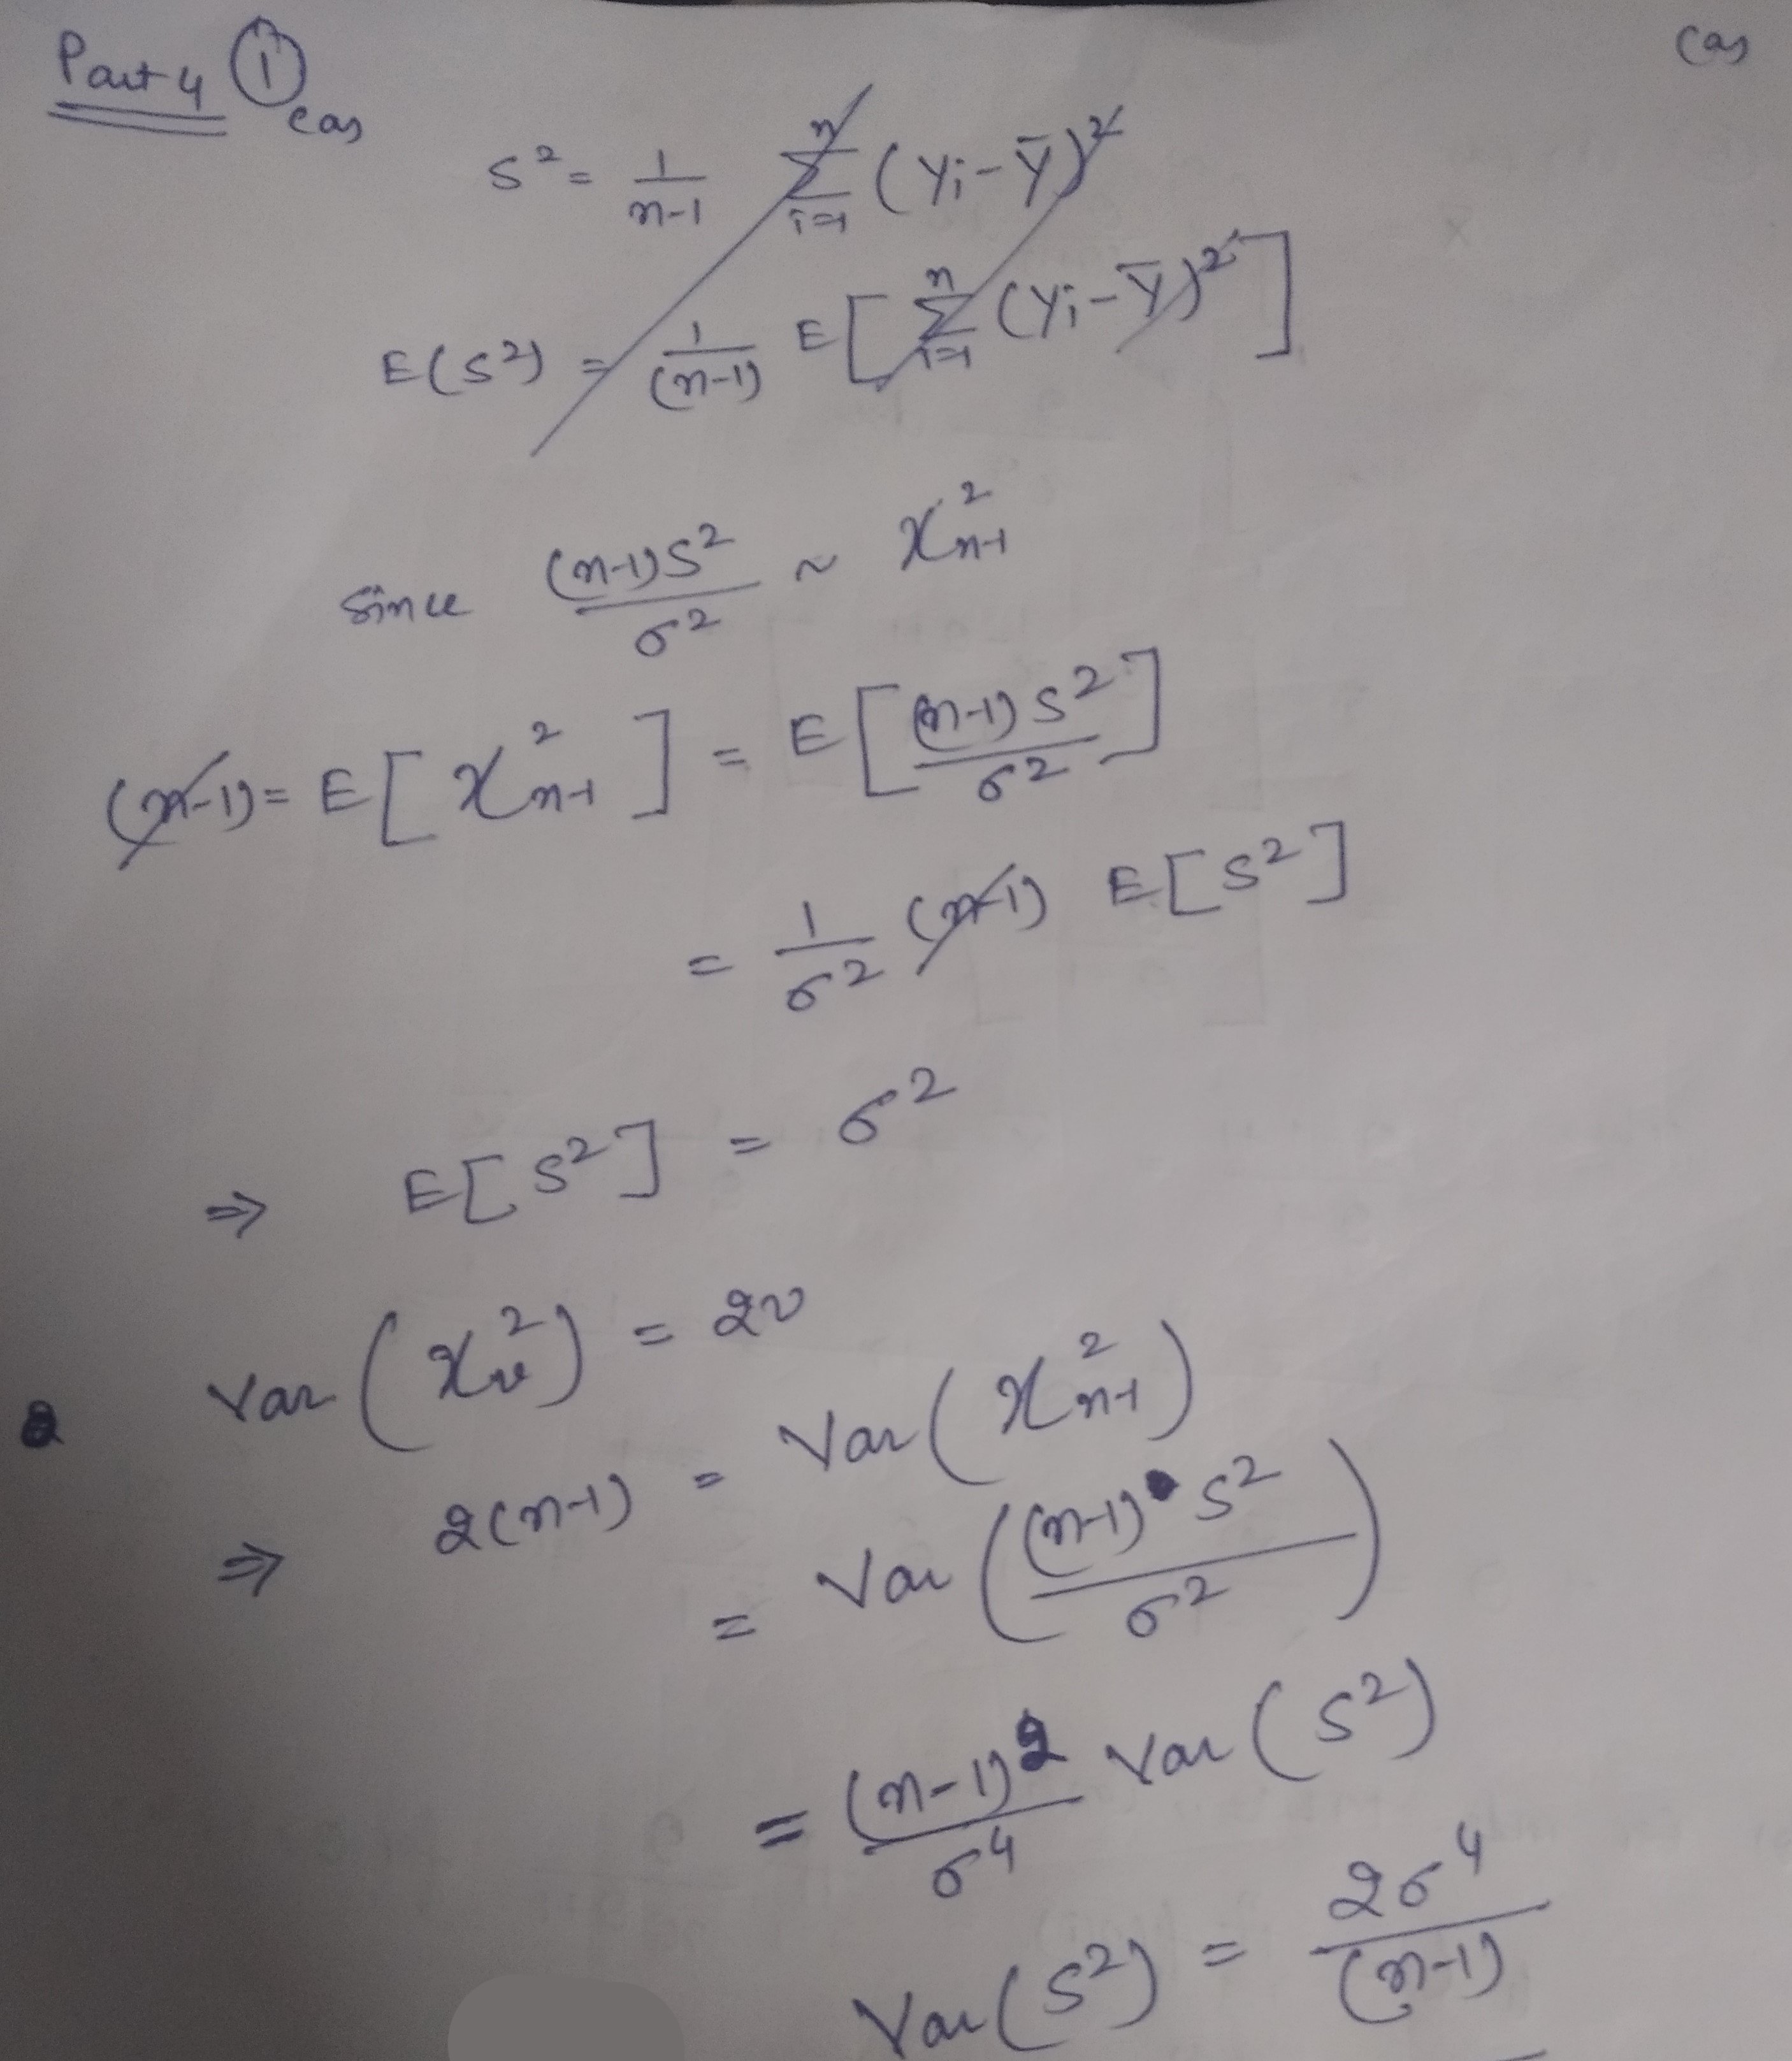 Part 4 ① (a)
(a)
S² = 1/(n-1) Σ_{i=1}^{n} (Yi - Ȳ)²
E(S²) = 1/(n-1) E[Σ_{i=1}^{n} (Yi - Ȳ)²]
Since (n-1)S²/σ² ~ χ²_{n-1}
(n-1) = E[χ²_{n-1}] = E[(n-1)S²/σ²]
= 1/σ² (n-1) E[S²]
⇒ E[S²] = σ²
Var(χ²_ν) = 2ν
⇒ 2(n-1) = Var(χ²_{n-1})
= Var((n-1)S²/σ²)
= (n-1)²/σ⁴ Var(S²)
Var(S²) = 2σ⁴/(n-1)